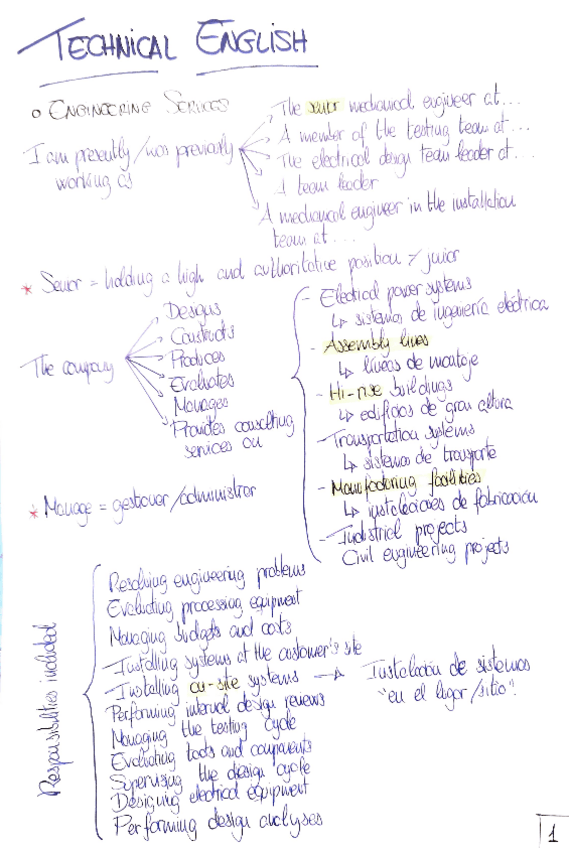 TECHNICAL ENGLISH
ENGINEERING SERVICES
I am presently/was previously
working as
The senior mechanical engineer at...
A member of the testing team at...
The electrical design team leader at...
A team leader
A mechanical engineer in the installation
team at...
* Senior = holding a high and authoritative position ≠ junior
The company
Designs
Constructs
Produces
Evaluates
Manages
Provides consulting
services on
- Electrical power systems
↳ sistemas de ingeniería eléctrica
- Assembly lines
↳ líneas de montaje
- Hi-rise buildings
↳ edificios de gran altura
- Transportation systems
↳ sistemas de transporte
- Manufacturing facilities
↳ instalaciones de fabricación
- Industrial projects
Civil engineering projects
* Manage = gestionar/administrar
Responsibilities included
Resolving engineering problems
Evaluating processing equipment
Managing budgets and costs
Installing systems at the customer's site
Installing on-site systems → Instalación de sistemas
"en el lugar/sitio".
Performing internal design reviews
Managing the testing cycle
Evaluating tools and components
Supervising the design cycle
Designing electrical equipment
Performing design analyses
1